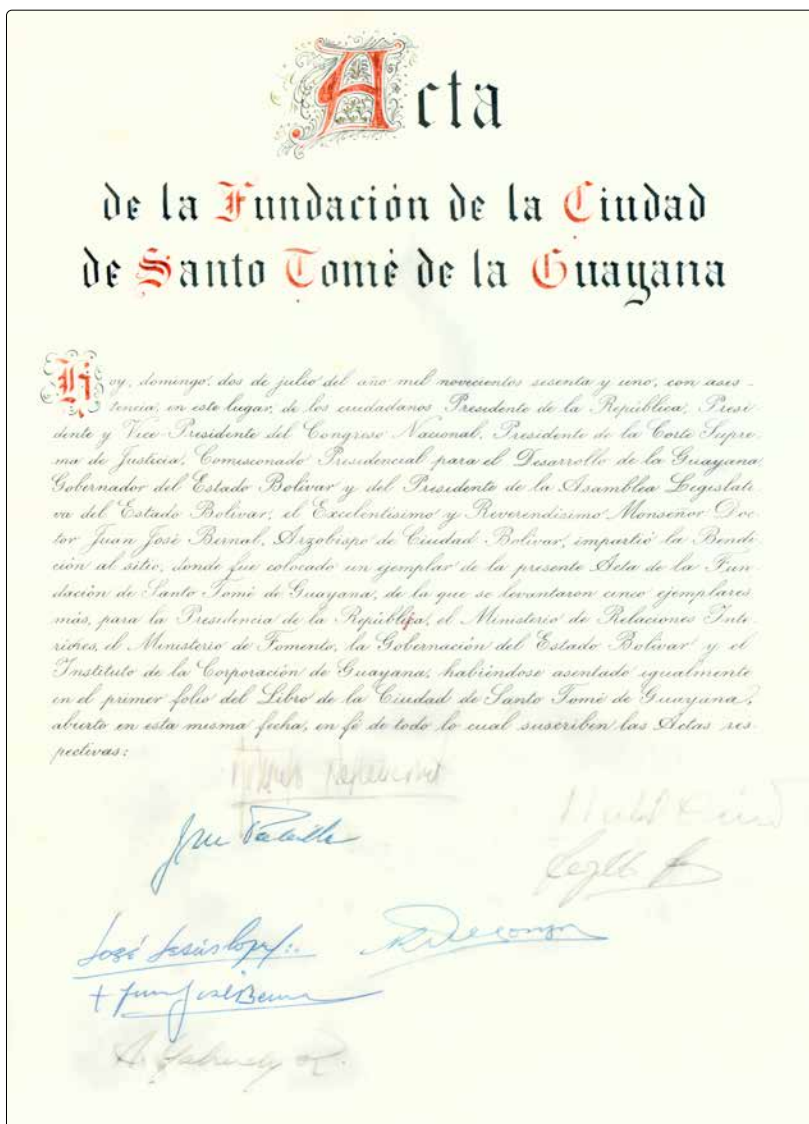 Acta
de la Fundación de la Ciudad
de Santo Tomé de la Guayana
Hoy, domingo, dos de julio del año mil novecientos sesenta y uno, con asis-
tencia, en este lugar, de los ciudadanos Presidente de la República, Presi-
dente y Vice-Presidente del Congreso Nacional, Presidente de la Corte Supre-
ma de Justicia, Comisionado Presidencial para el Desarrollo de la Guayana,
Gobernador del Estado Bolívar y del Presidente de la Asamblea Legislati-
va del Estado Bolívar, el Excelentísimo y Reverendísimo Monseñor Doc-
tor Juan José Bernal, Arzobispo de Ciudad Bolívar, impartió la Bendi-
ción al sitio, donde fue colocado un ejemplar de la presente Acta de la Fun-
dación de Santo Tomé de Guayana, de la que se levantaron cinco ejemplares
más, para la Presidencia de la República, el Ministerio de Relaciones Inte-
riores, el Ministerio de Fomento, la Gobernación del Estado Bolívar y el
Instituto de la Corporación de Guayana, habiéndose asentado igualmente
en el primer folio del Libro de la Ciudad de Santo Tomé de Guayana,
abierto en esta misma fecha, en fé de todo lo cual suscriben las Actas res-
pectivas:
José Jesús López
+ Juan José Bernal